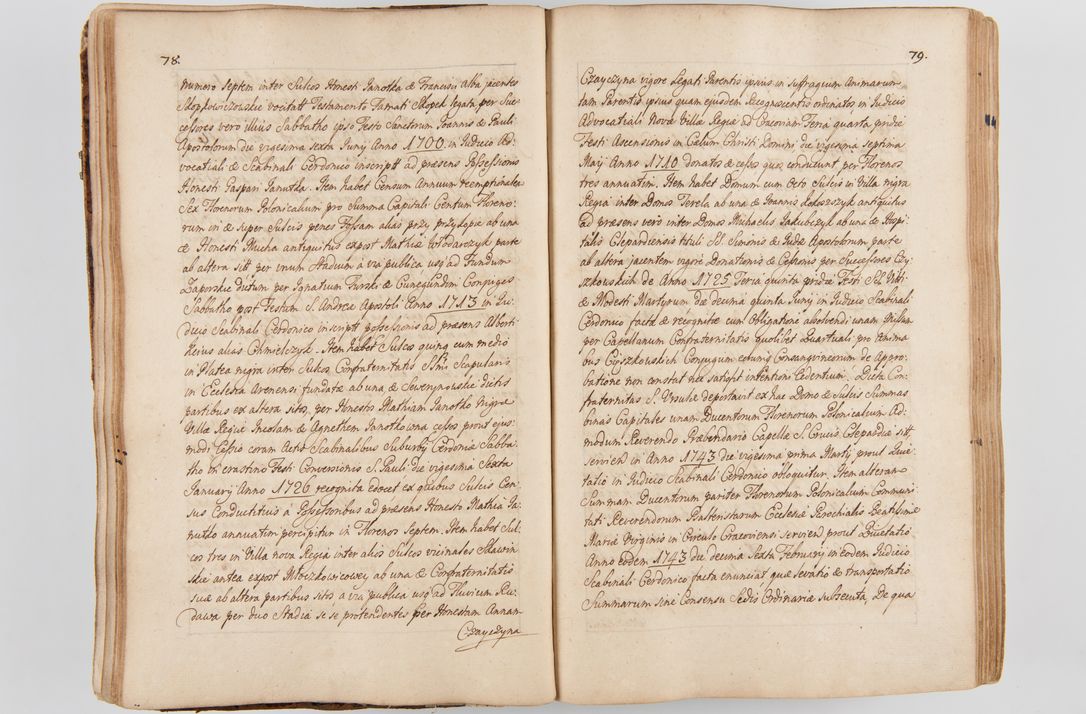 78.
numero Septem inter Sulcos Honesti Janotka & Francisci alba jacentes
vocitatt Testamento Famati Skopek legata, per Suc-
cessores vero illius Sabbatho ipso Festo Sanctorum Joannis & Pauli
Apostolorum die vigesima sexta Junij Anno 1700 in Judicio Ad-
vocatiali & Scabinali Cerdonico inscriptt ad præsens Possessionis
Honesti Caspari Janutka. Item habet Censum Annuum reemptionalem
Sex Florenorum Polonicalium pro Summa Capitali Centum Floreno-
rum in & super Sulcis penes Fossam alias przy przykopie ab una
& Honesti Mucha antiquitus expost Mathiæ Włodarczyk parte
ab altera sitt per unum Stadium a via publica usq ad Fundum
Zaporskie dictum per Ignatium Turski & Cunegundim Conjuges
Sabbatho post Festum S. Andreæ Apostoli Anno 1713 in Ju-
dicio Scabinali Cerdonico inscriptt possessionis ad præsens Alberti
Reius alias Chmielczyk. Item habet Sulcos quinq cum medio
in Platea nigra inter Sulcos Confraternitatis SSmi Scapularis
in Ecclesia Arenensi fundatæ ab una & Sewerynowskie dictis
partibus ex altera sitos, per Honestos Mathiam Janotko Nigræ
Villæ Regiæ Incolam & Agnethem Janotkowna cessos prout ejus-
modi Cessio coram Actis Scabinalibus Suburbij Cerdoniæ Sabba-
tho in crastino Festi Conversionis S. Pauli die vigesima Sexta
Januarij Anno 1726 recognita edocet ex quibus Sulcis Cen-
sus Conductitius a Possessoribus ad præsens Honesto Mathia Ja-
nutko annuatim percipitur in Florenos Septem. Item habet Sul-
cos tres in Villa nova Regia inter alios Sulcos vicinales Skawin-
skie antea expost Młoczkowicowey ab una & Confraternitatis
suæ ab altera partibus sitos a via publica usq ad Fluvium Ru-
dawa per duo Stadia se se protendentes per Honestam Annam
Czayczyna
79.
Czayczyna vigore Legati Parentis ipsius in suffragium Animarum
tam Parentis ipsius quam ejusdem Recognoscentis ordinatos in Judicio
Advocatiali Novæ Villæ Regiæ ad Cracoviam Feria quarta pridie
Festi Ascensionis in Cælum Christi Domini die vigesima septima
Maij Anno 1710 donatos & cessos quos conducunt per Florenos
tres annuatim. Item habet Domum cum Octo Sulcis in Villa nigra
Regia inter Domos Terela ab una & Joannis antiquitus
ad præsens vero inter Domos Michaelis Jakubczyk ab una & Hospi-
talis Clepardiensis tituli SS. Simonis & Judæ Apostolorum parte
ab altera jacentem vigore Donationis & Cessionis per Successores Cy-
szkowskich de Anno 1725 Feria quinta pridie Festi SS. Viti
& Modesti Martyrum die decima quinta Junij in Judicio Scabinali
Cerdonico factæ & recognitæ cum Obligatione absolvendi unam Missam
per Capellanum Confraternitatis quolibet Quartuali pro Anima
bus Cyszkowskich Conjugum eorumq Consanguineorum de Appro-
batione non constat nec satisfit intentioni Cedentium. Dicta Con-
fraternitas S. Ursulæ deportavit ex hac Domo & Sulcis Summas
binas Capitales unam Ducentorum Florenorum Polonicalium Ad-
modum Reverendo Præbendario Capellæ S. Crucis Clepardiæ sitt
servien in Anno 1743 die vigesima prima Martij prout Quie-
tatio in Judicio Scabinali Cerdonico obloquitur. Item alteram
Summam Ducentorum pariter Florenorum Polonicalium Communi-
tati Reverendorum Psalteristarum Ecclesiæ Parochialis Beatissimæ
Mariæ Virginis in Circulo Cracoviensi servien prout Quietatio
Anno eodem 1743 die decima Sexta February in eodem Judicio
Scabinali Cerdonico facta enunciat, quæ levatio & transportatio
Summarum sine Consensu Sedis Ordinariæ subsecuta, De qua